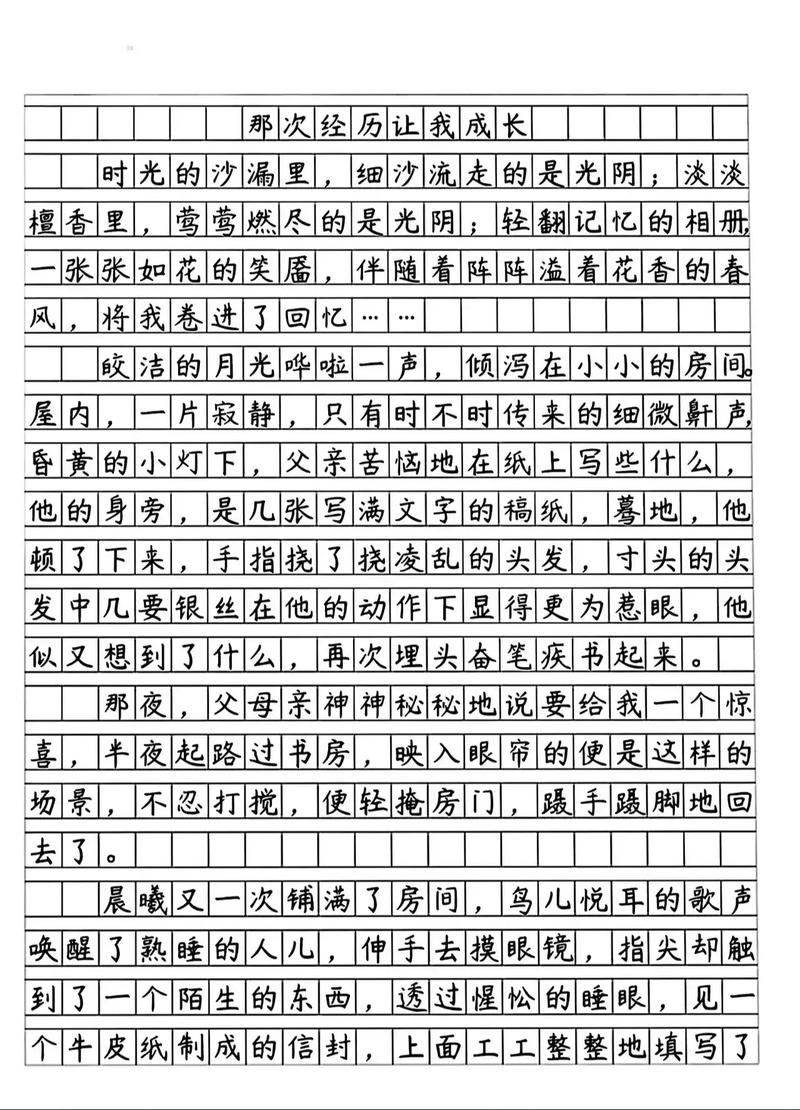 那次经历让我成长
时光的沙漏里，细沙流走的是光阴；淡淡
檀香里，莺莺燃尽的是光阴；轻翻记忆的相册，
一张张如花的笑靥，伴随着阵阵溢着花香的春
风，将我卷进了回忆……
皎洁的月光哗啦一声，倾泻在小小的房间。
屋内，一片寂静，只有时不时传来的细微鼾声，
昏黄的小灯下，父亲苦恼地在纸上写些什么，
他的身旁，是几张写满文字的稿纸，蓦地，他
顿了下来，手指挠了挠凌乱的头发，寸头的头
发中几要银丝在他的动作下显得更为惹眼，他
似又想到了什么，再次埋头奋笔疾书起来。
那夜，父母亲神神秘秘地说要给我一个惊
喜，半夜起路过书房，映入眼帘的便是这样的
场景，不忍打搅，便轻掩房门，蹑手蹑脚地回
去了。
晨曦又一次铺满了房间，鸟儿悦耳的歌声
唤醒了熟睡的人儿，伸手去摸眼镜，指尖却触
到了一个陌生的东西，透过惺忪的睡眼，见一
个牛皮纸制成的信封，上面工工整整地填写了